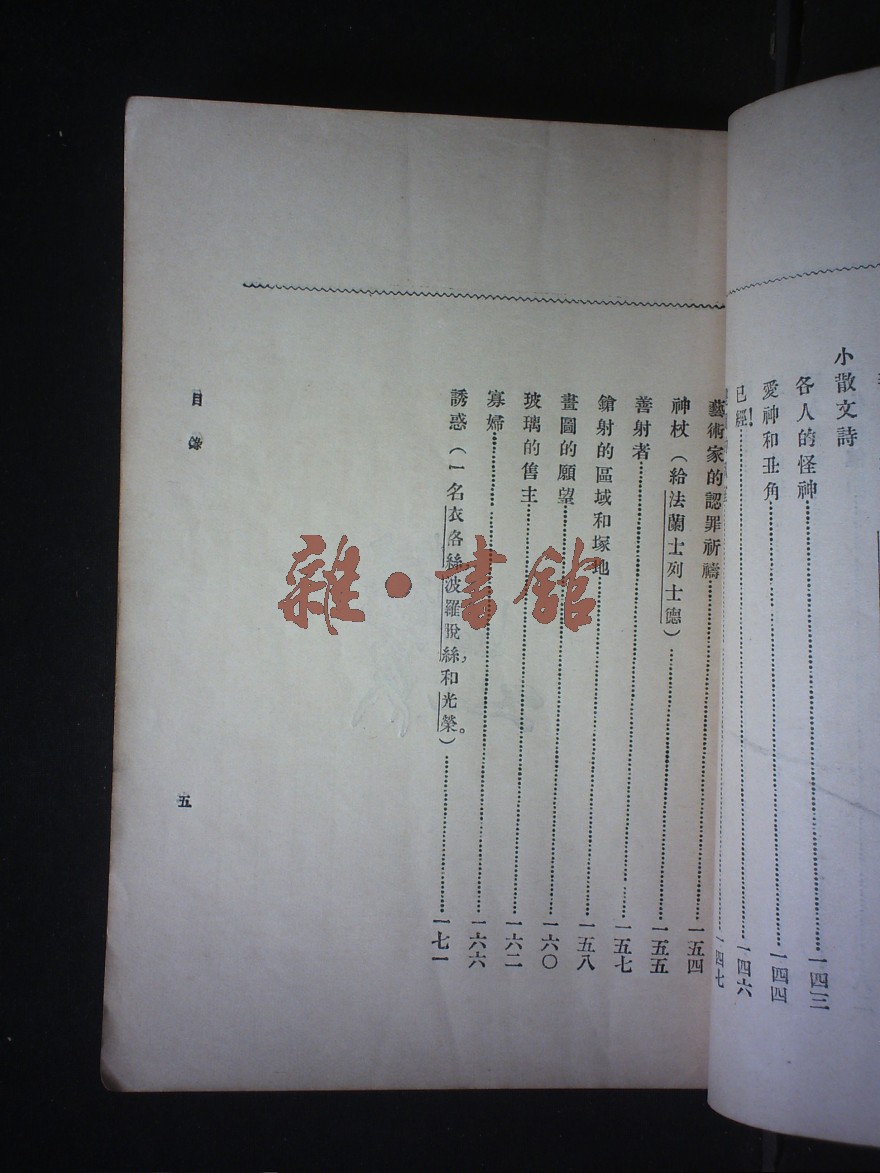 小散文詩
各人的怪神 一四三
愛神和丑角 一四四
已經！ 一四六
一四七
藝術家的認罪祈禱 一五四
神杖（給法蘭士列士德） 一五五
善射者 一五七
鎗射的區域和塚地 一五八
畫圖的願望 一六〇
玻璃的售主 一六二
寡婦 一六六
誘惑（一名衣洛絲波羅脫絲，和光榮。） 一七一
目錄
五
雜·書館